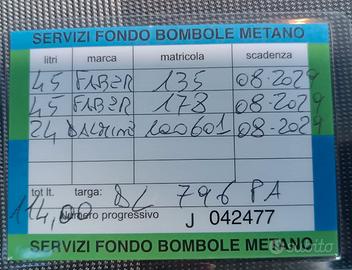 SERVIZI FONDO BOMBOLE METANO
litri marca matricola scadenza
45 FABER 135 08-2029
45 FABER 178 08-2029
24 DALMINE 100601 08-2029
tot lt. targa: DL 796 PA
114,00 Numero progressivo J 042477
SERVIZI FONDO BOMBOLE METANO
subito